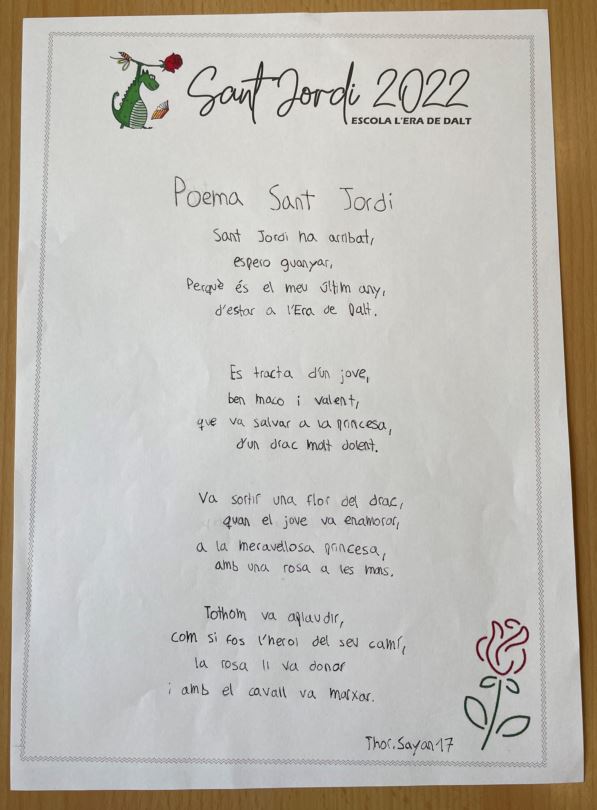 Sant Jordi 2022
ESCOLA L'ERA DE DALT
Poema Sant Jordi
Sant Jordi ha arribat,
espero guanyar,
Perquè és el meu últim any,
d'estar a l'Era de Dalt.
Es tracta d'un jove,
ben maco i valent,
que va salvar a la princesa,
d'un drac molt dolent.
Va sortir una flor del drac,
quan el jove va enamorar,
a la meravellosa princesa,
amb una rosa a les mans.
Tothom va aplaudir,
com si fos l'heroi del seu camí,
la rosa li va donar
i amb el cavall va marxar.
Thor.Sayan17